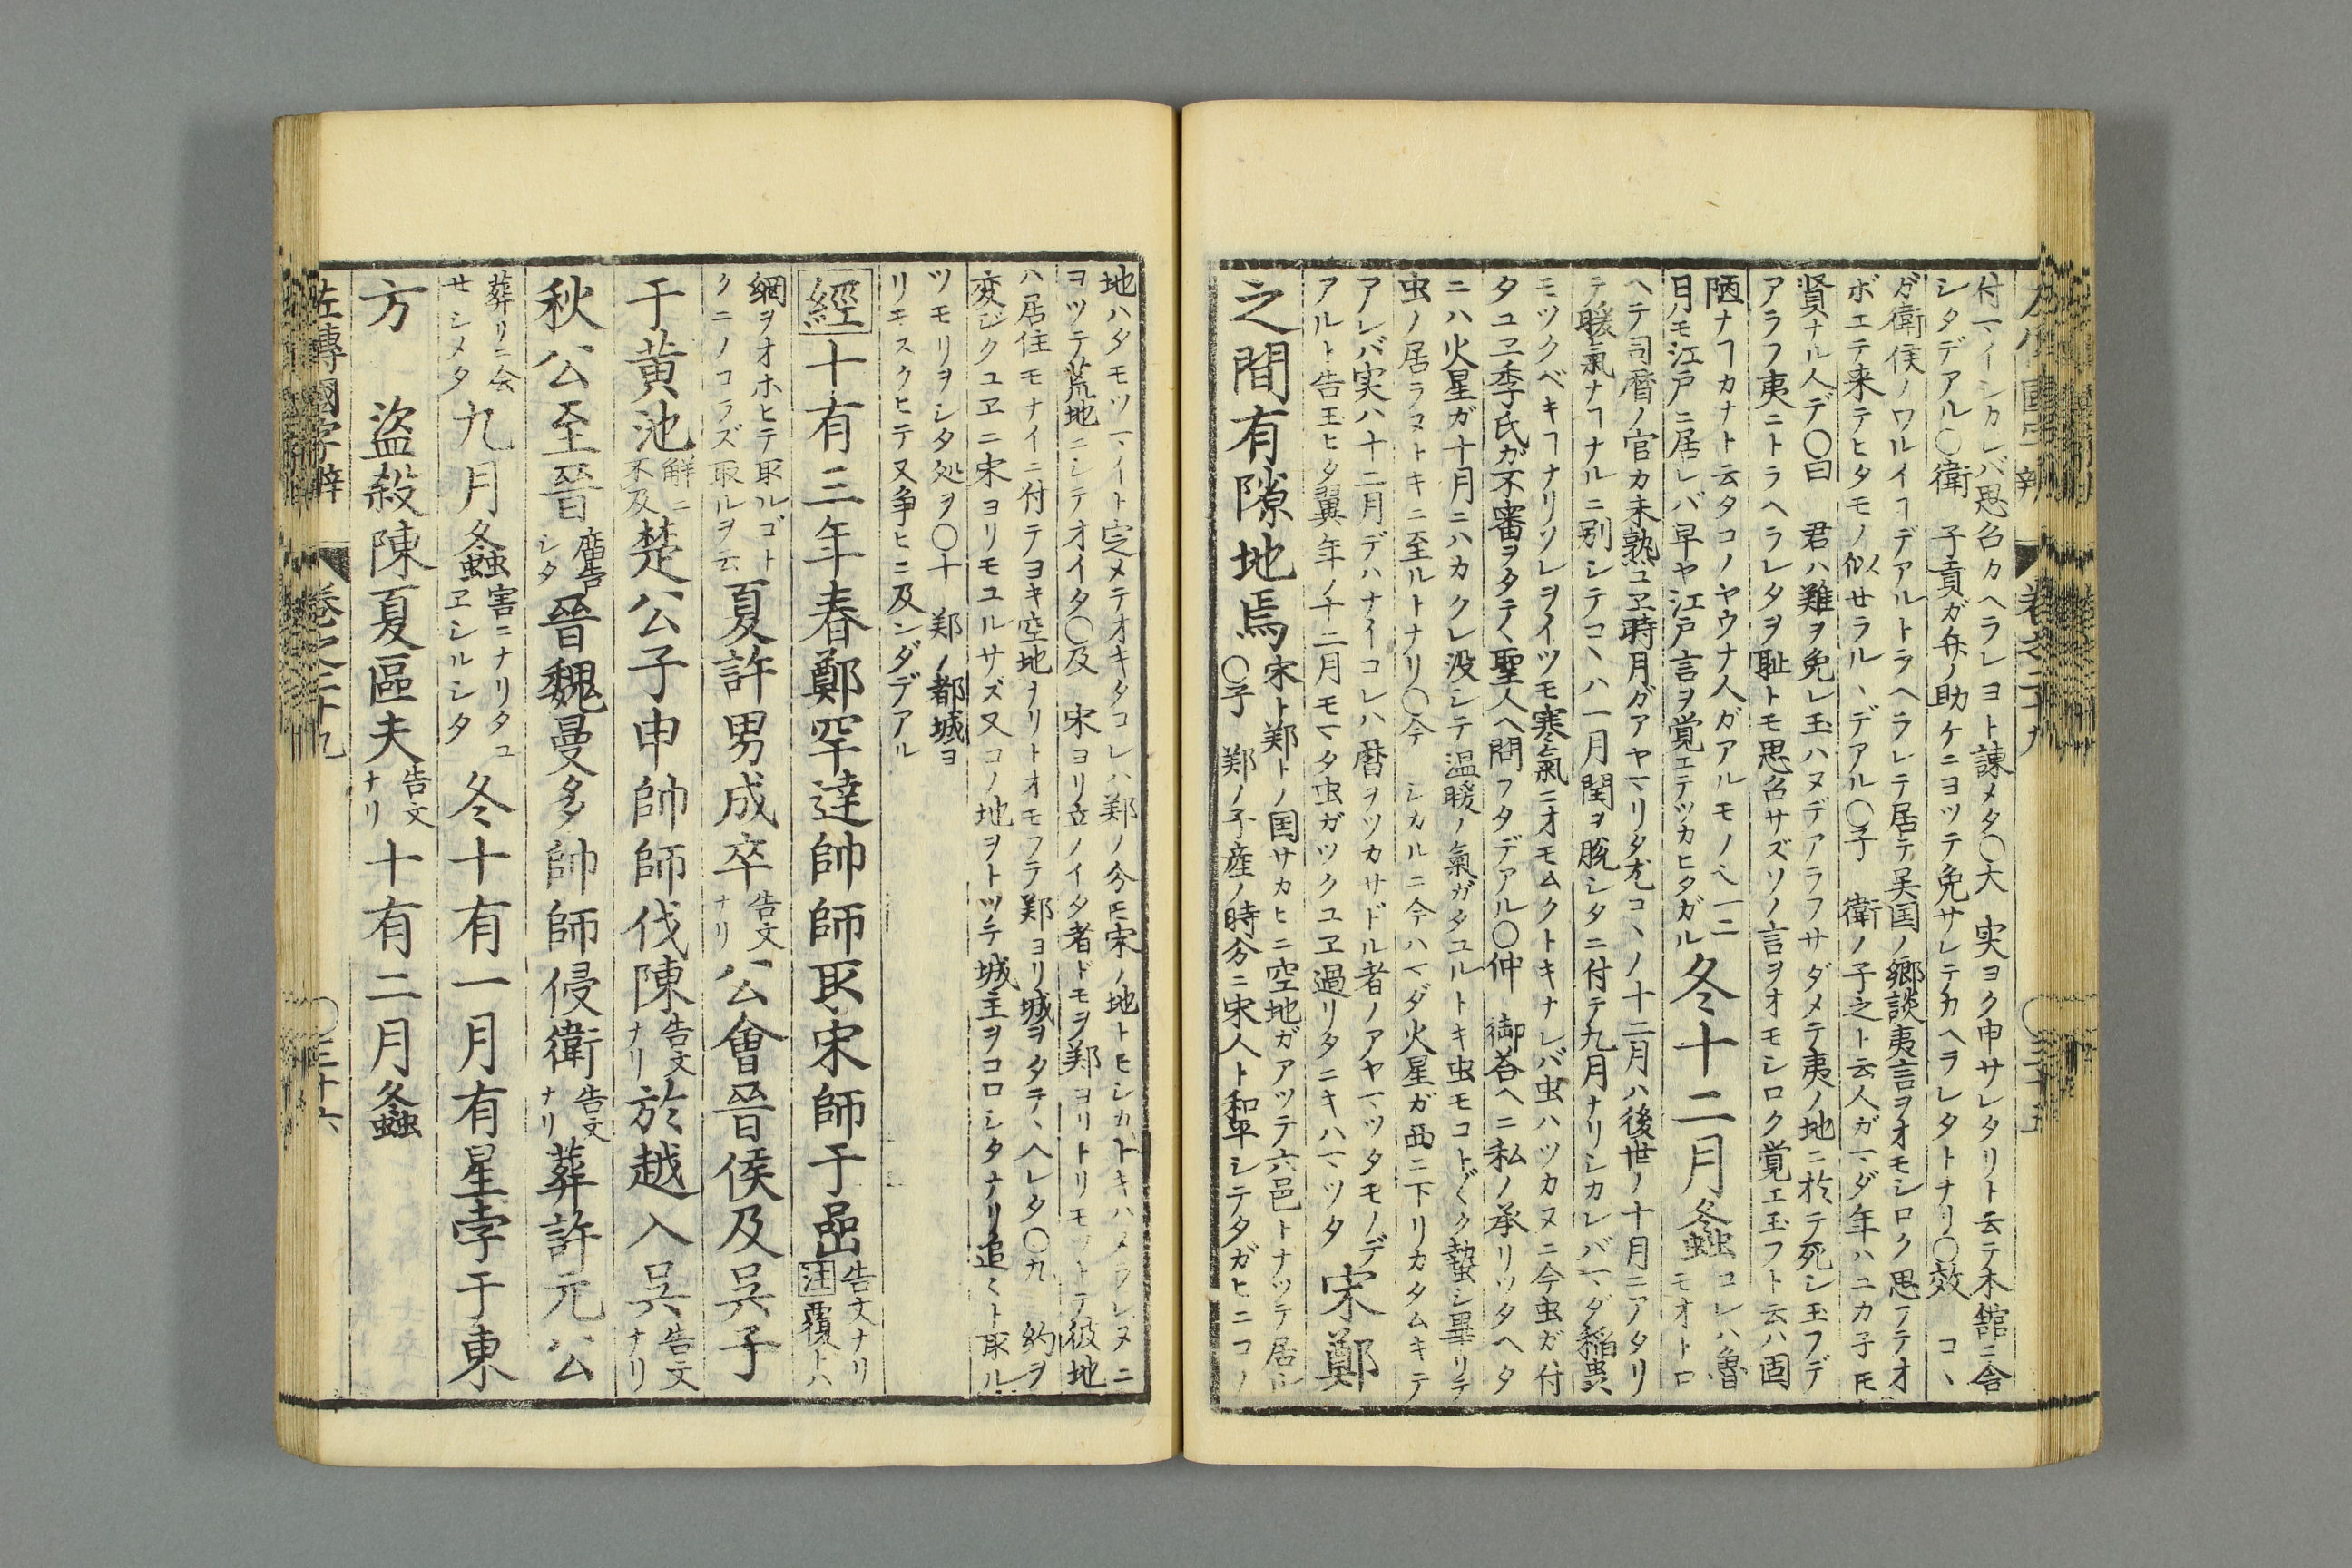 付マイシカレバ思召カヘラレヨト諌メタ〇大 実ヨク申サレタリト云テ木舘ニ舎
シタデアル〇衛 子貢ガ弁ノ助ケニヨツテ免サレテカヘラレタトナリ〇效 コヽ
ガ衛侯ノワルイヿデアルトラヘラレテ居テ呉国ノ郷談夷言ヲオモシロク思フテオ
ボエテ来テヒタモノ似セラルヽデアル〇子 衛ノ子之ト云人ガマダ年ハユカ子𪜈
賢ナル人デ〇曰 君ハ難ヲ免レ玉ハヌデアラフサダメテ夷ノ地ニ於テ死シ玉フデ
アラフ夷ニトラヘラレタヲ耻トモ思召サズソノ言ヲオモシロク覚エ玉フト云ハ固
陋ナヿカナト云タコノヤウナ人ガアルモノヘ一二
月モ江戸ニ居レバ早ヤ江戸言ヲ覚エテツカヒタガル
冬十二月螽
コレハ魯
モオトロ
ヘテ司暦ノ官カ未熟ユヱ時月ガアヤマリタ尤コヽノ十二月ハ後世ノ十月ニアタリ
テ暖氣ナヿナルニ別シテコヽハ一月閏ヲ脱シタニ付テ九月ナリシカレバマダ稲虫
ミツクベキヿナリソレヲイツモ寒氣ニオモムクトキナレバ虫ハツカヌニ今虫ガ付
タユヱ季氏ガ不審ヲタテヽ聖人ヘ問フタデアル〇仲 御荅ヘニ私ノ承リツタヘタ
ニハ火星ガ十月ニハカクレ没シテ温暖ノ氣ガタユルトキ虫モコトゴトク蟄シ畢リテ
虫ノ居ラヌトキニ至ルトナリ〇今 シカルニ今ハマダ火星ガ西ニ下リカタムキテ
アレバ実ハ十二月デハナイコレハ暦ヲツカサドル者ノアヤマツタモノデ
アルト告玉ヒタ翼年ノ十二月モマタ虫ガツクユヱ過リタニキハマツタ
宋鄭
之間有隙地焉
宋ト鄭トノ国サカヒニ空地ガアツテ六邑トナツテ居ル
〇子 鄭ノ子産ノ時分ニ宋人ト和平シテタガヒニコノ
地ハタモツマイト定メテオキタコレハ鄭ノ分𪜈宋ノ地トモシカトキハメラレヌニ
ヨツテ荒地ニシテオイタ〇及 宋ヨリ立ノイタ者ドモヲ鄭ヨリトリモツトテ彼地
ハ居住モナイニ付テヨキ空地ヲリトオモフテ鄭ヨリ城ヲタテヽヘレタ〇九 約ヲ
変ジクユヱニ宋ヨリモユルサズ又コノ地ヲトツテ城主ヲコロシタナリ追々ト取ル
ツモリヲシタ処ヲ〇十 鄭ノ都城ヨ
リモスクヒテ又争ヒニ及ンダデアル
經十有三年春鄭罕達帥師取宋師于嵒
告文ナリ
注覆トハ
網ヲオホヒテ取ルゴト
クニノコラズ取ルヲ云
夏許男成卒
告文
ナリ
公會晉侯及呉子
于黄池
解ニ
不及
楚公子申帥師伐陳
告文
ナリ
於越入呉
告文
ナリ
秋公至晉
廟告
シタ
晉魏曼多帥師侵衛
告文
ナリ
葬許元公
葬リニ会
サシメタ
九月螽
害ニナリタユ
ヱシルシタ
冬十有一月有星孛于東
方 盗殺陳夏區夫
告文
ナリ
十有二月螽
左傳國字辯 巻之二十九 〇三十六